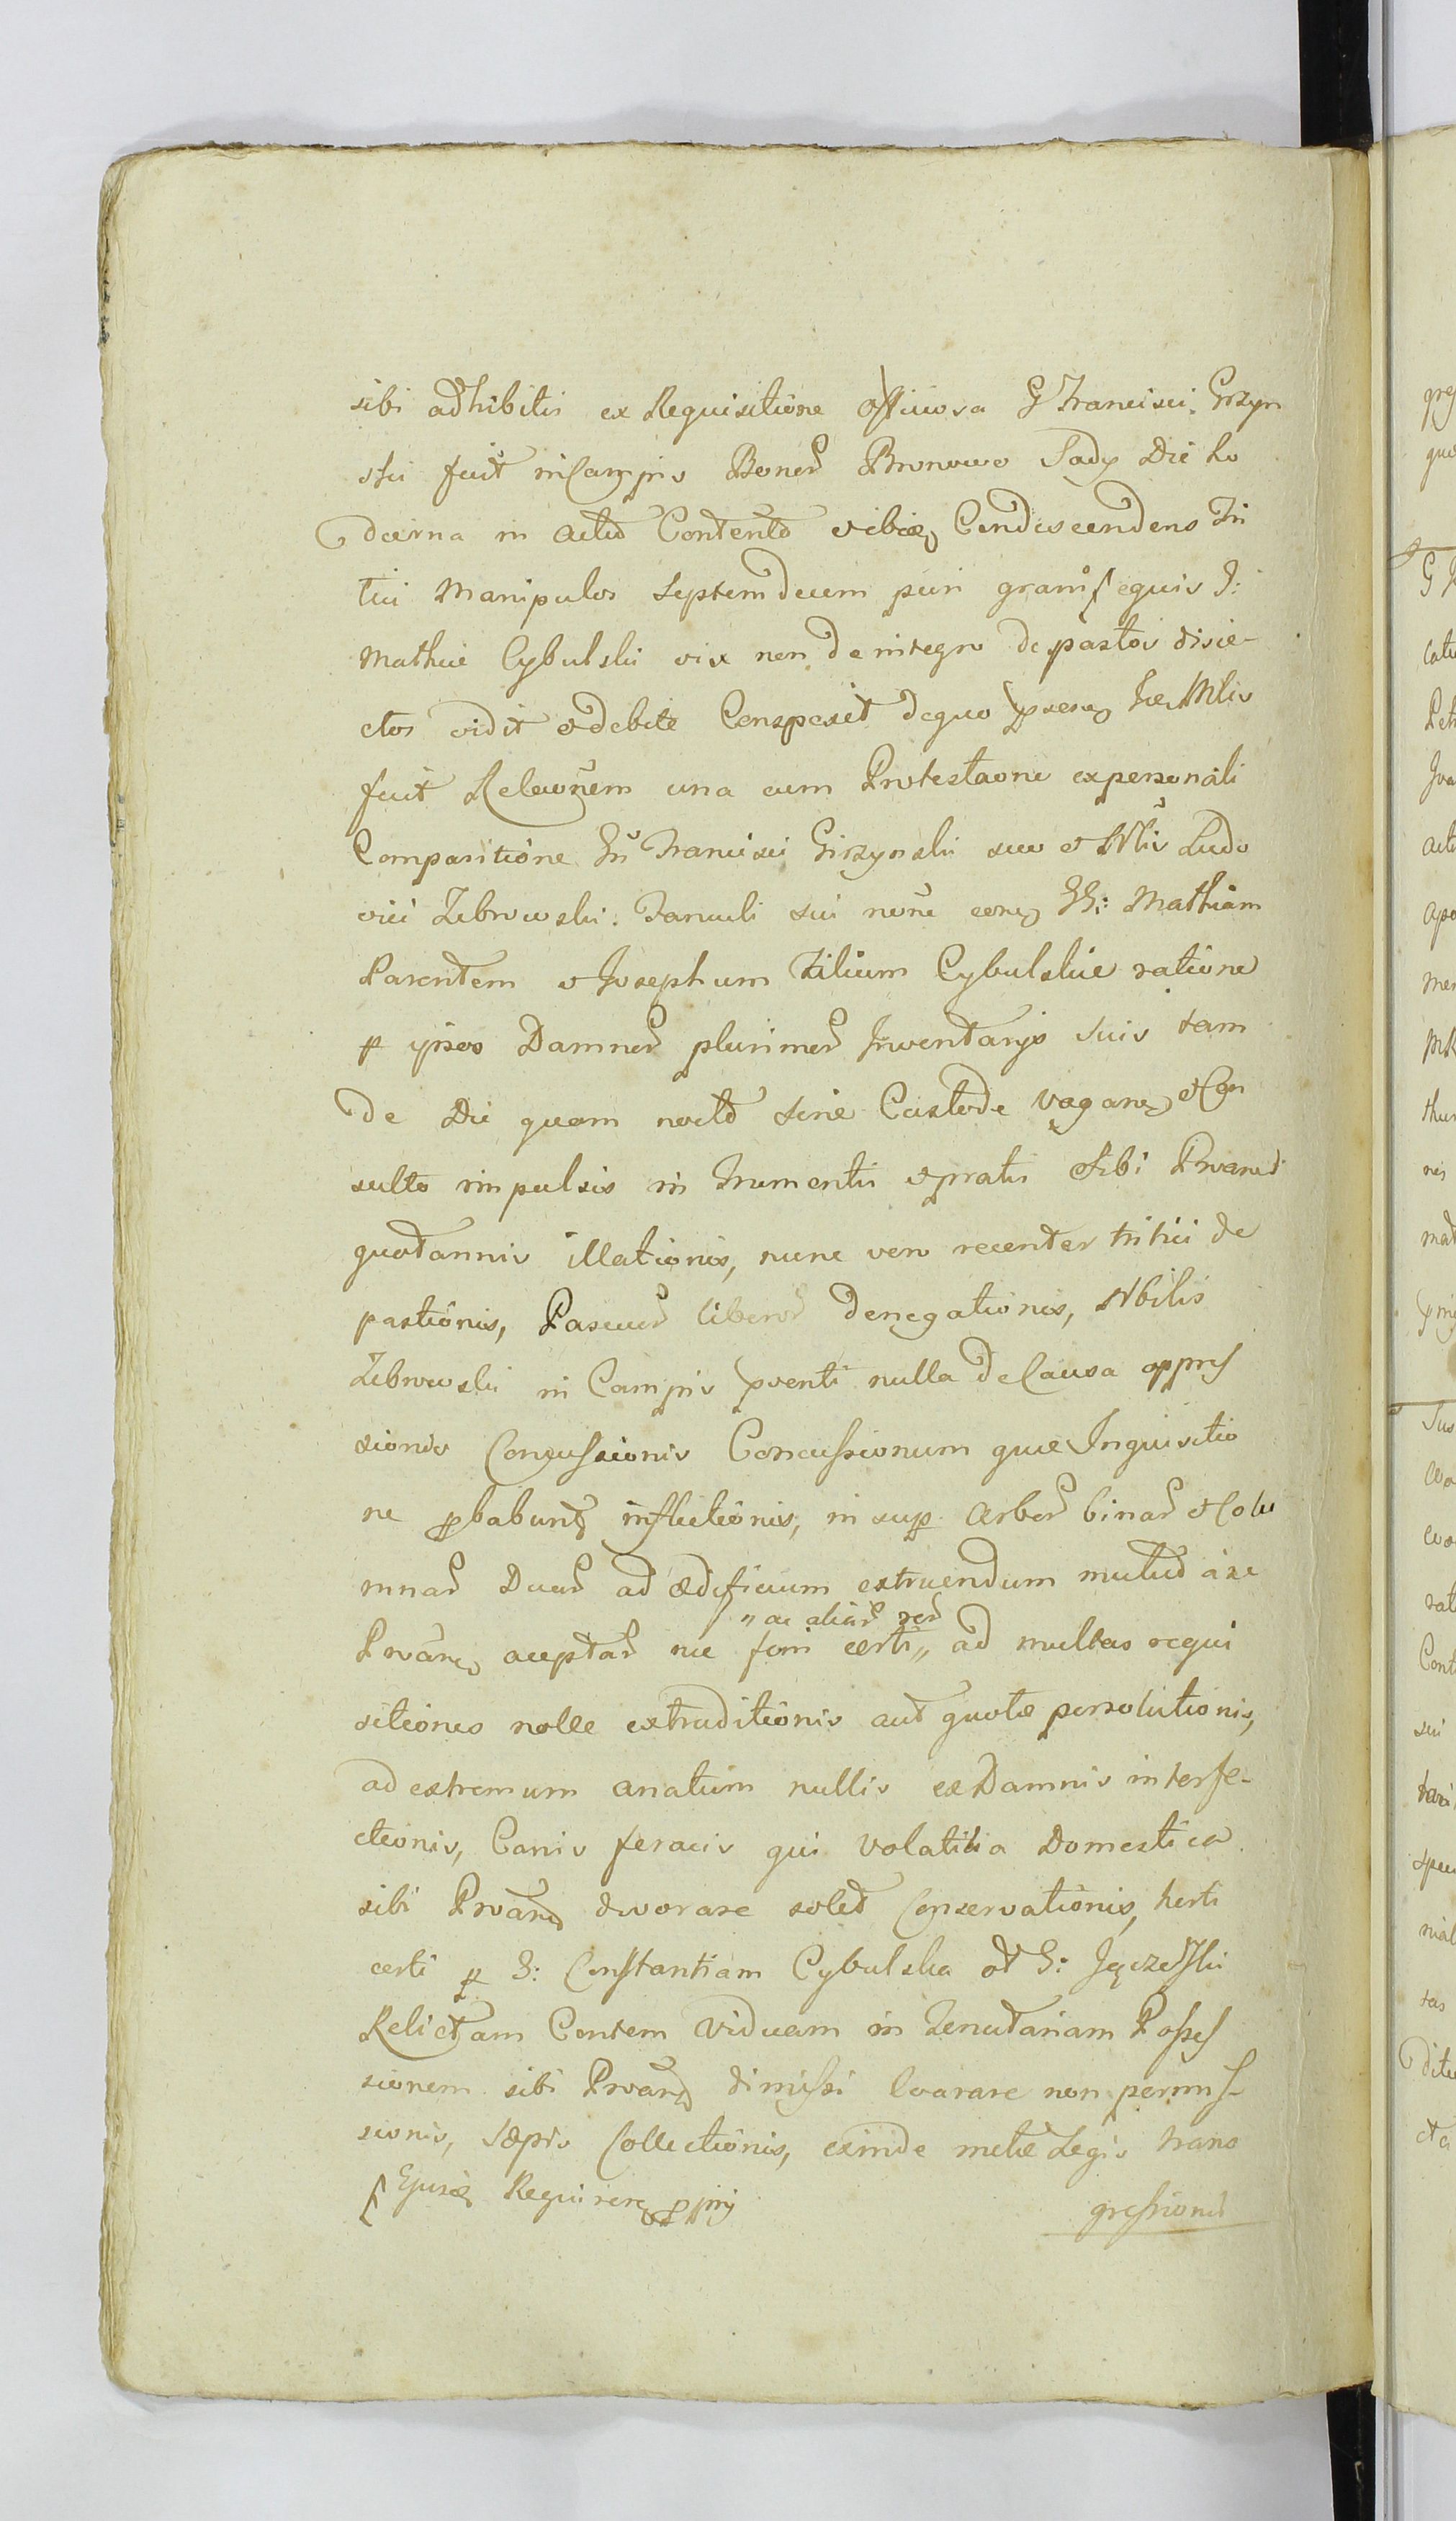 sibi adhibitis ex Requisitione officiosa G Francisci Grzyn
ski fuit in Campis Bonor Bronowo Sady Die ho
dierna in actu Contento ibiq Condescendens Tri
tici Manipulos Septemdecim puri grani ab equis G:
Mathiæ Cybulski vix non de integro depastos disie-
ctos vidit et debite Conspexit de quo præsen Suæ Mlis
fecit Relaonem una cum Protestaone ex personali
Comparitione Gsi Francisci Grzynski suo et Nlis Ludo
vici Zebrowski Famuli sui noie con GG: Mathiam
Parentem et Josephum Filium Cybulskie ratione
p ipsos Damnor plurimor Inventarijs suis tam
de Die quam noctu sine Custode vagan et Con
sulto impulsis in Frumentis et pratis Sibi Proanti
quotannis illationis, nunc vero recenter tritici de
pastionis, Pascuor liberor denegationis, Nbilis
Zebrowski in Campis pventi nulla de Causa oppres
sionis Concussionis Concussionum quæ Inquisitio
ne pbabunt inflictionis, insup arbor binar et Colu
mnar Duar ad ædificium extruendum mutuo a se
Proan aceptar nec non certi ad multas requi
„ ac aliar rer
sitiones nolle extraditionis aut quotæ persolutionis,
ad extremum anatum nullis ex Damnis interfe-
ctionis, Canis feracis qui volatilia Domestica
sibi Proan devorare solet Conservationis, horti
certi p G: Constantiam Cybulska ot G: Jęczeski
Relictam Contem viduam in Tenutariam Posses
sionem sibi Proan dimissi Coarare non permis-
sionis, sæpis Collectionis, exinde metæ Legis trans
Requiren
gressionis